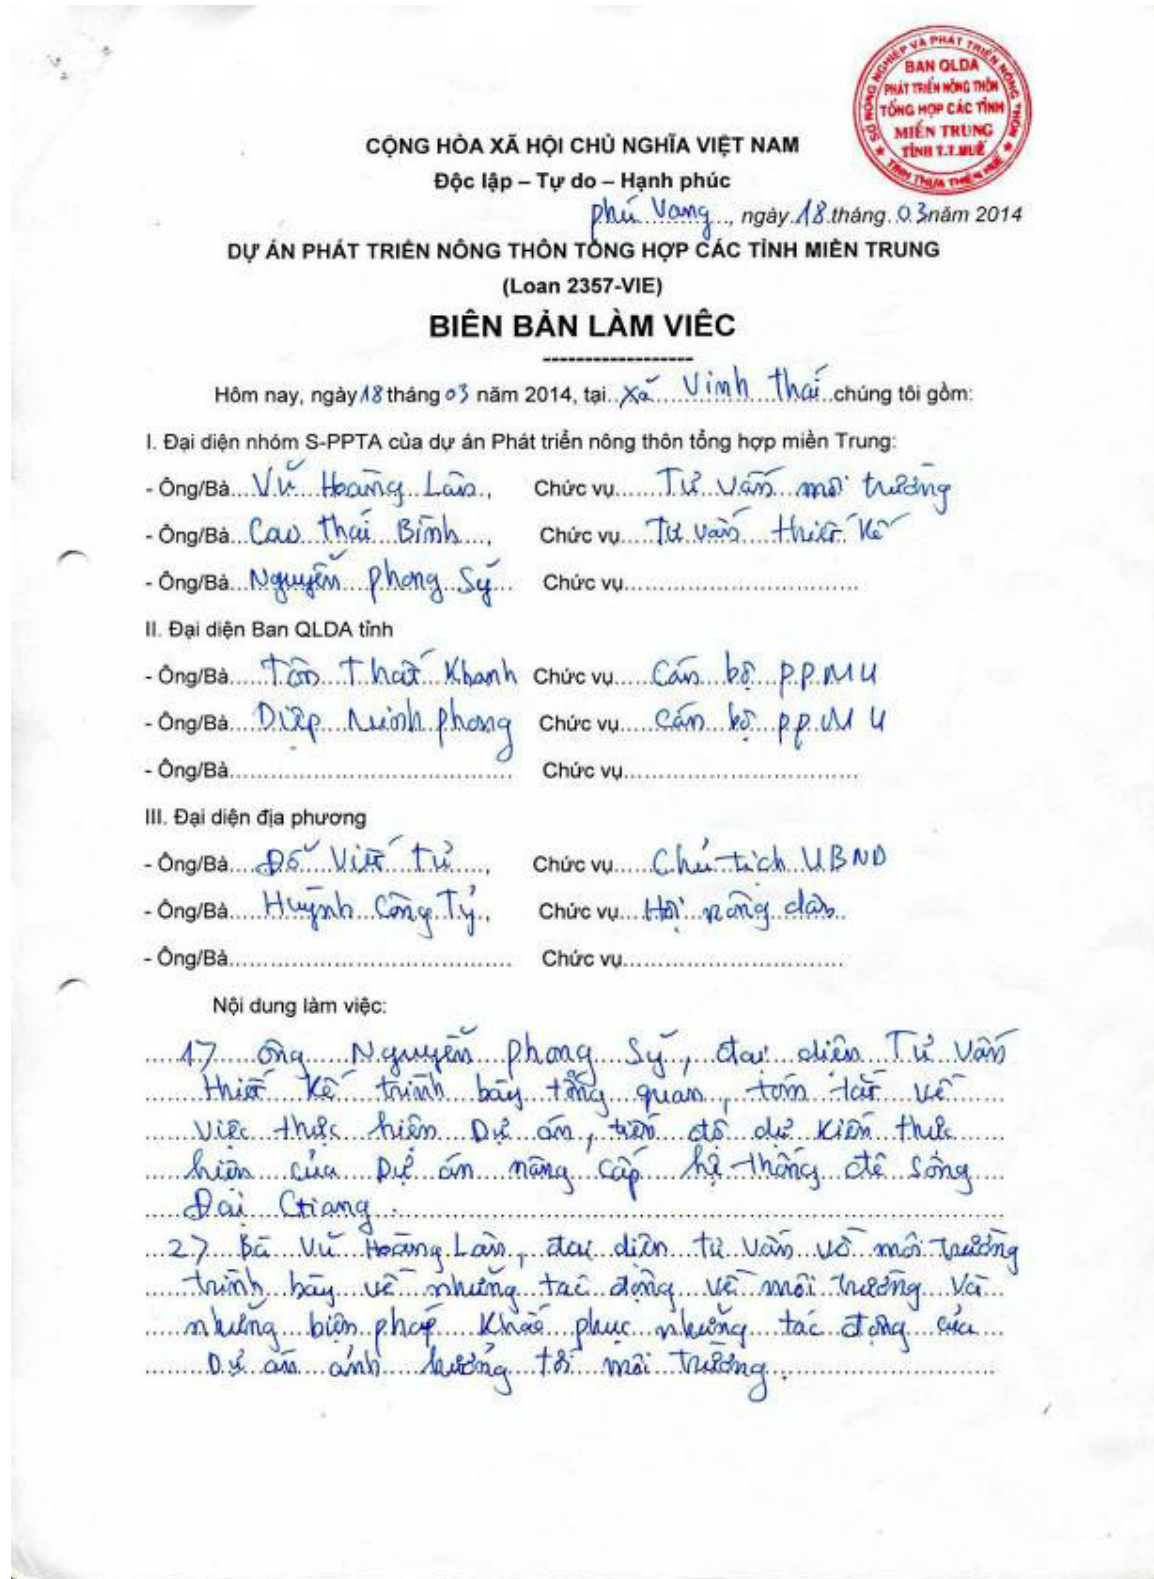 SỞ NÔNG NGHIỆP VÀ PHÁT TRIỂN NÔNG THÔN
BAN QLDA
PHÁT TRIỂN NÔNG THÔN
TỔNG HỢP CÁC TỈNH
MIỀN TRUNG
TỈNH T.T.HUẾ
TỈNH THỪA THIÊN HUẾ
CỘNG HÒA XÃ HỘI CHỦ NGHĨA VIỆT NAM
Độc lập – Tự do – Hạnh phúc
Phú Vang, ngày 18 tháng 03 năm 2014
DỰ ÁN PHÁT TRIỂN NÔNG THÔN TỔNG HỢP CÁC TỈNH MIỀN TRUNG
(Loan 2357-VIE)
BIÊN BẢN LÀM VIỆC
------------------
Hôm nay, ngày 18 tháng 03 năm 2014, tại xã Vinh Thái chúng tôi gồm:
I. Đại diện nhóm S-PPTA của dự án Phát triển nông thôn tổng hợp miền Trung:
- Ông/Bà Vũ Hoàng Lân, Chức vụ Tư vấn môi trường
- Ông/Bà Cao Thái Bình, Chức vụ Tư vấn thiết kế
- Ông/Bà Nguyễn Phong Sỹ Chức vụ
II. Đại diện Ban QLDA tỉnh
- Ông/Bà Tôn Thất Khanh Chức vụ Cán bộ PPMU
- Ông/Bà Diệp Minh Phong Chức vụ Cán bộ PPMU
- Ông/Bà Chức vụ
III. Đại diện địa phương
- Ông/Bà Đỗ Viết Tử, Chức vụ Chủ tịch UBND
- Ông/Bà Huỳnh Công Tỷ, Chức vụ Hội nông dân
- Ông/Bà Chức vụ
Nội dung làm việc:
1) Ông Nguyễn Phong Sỹ, đại diện Tư vấn
thiết kế trình bày tổng quan, tóm tắt về
việc thực hiện Dự án, tiến độ dự kiến thực
hiện của Dự án nâng cấp hệ thống đê Sông
Đại Giang.
2) Bà Vũ Hoàng Lân, đại diện tư vấn về môi trường
trình bày về những tác động về môi trường và
những biện pháp khắc phục những tác động của
Dự án ảnh hưởng tới môi trường.